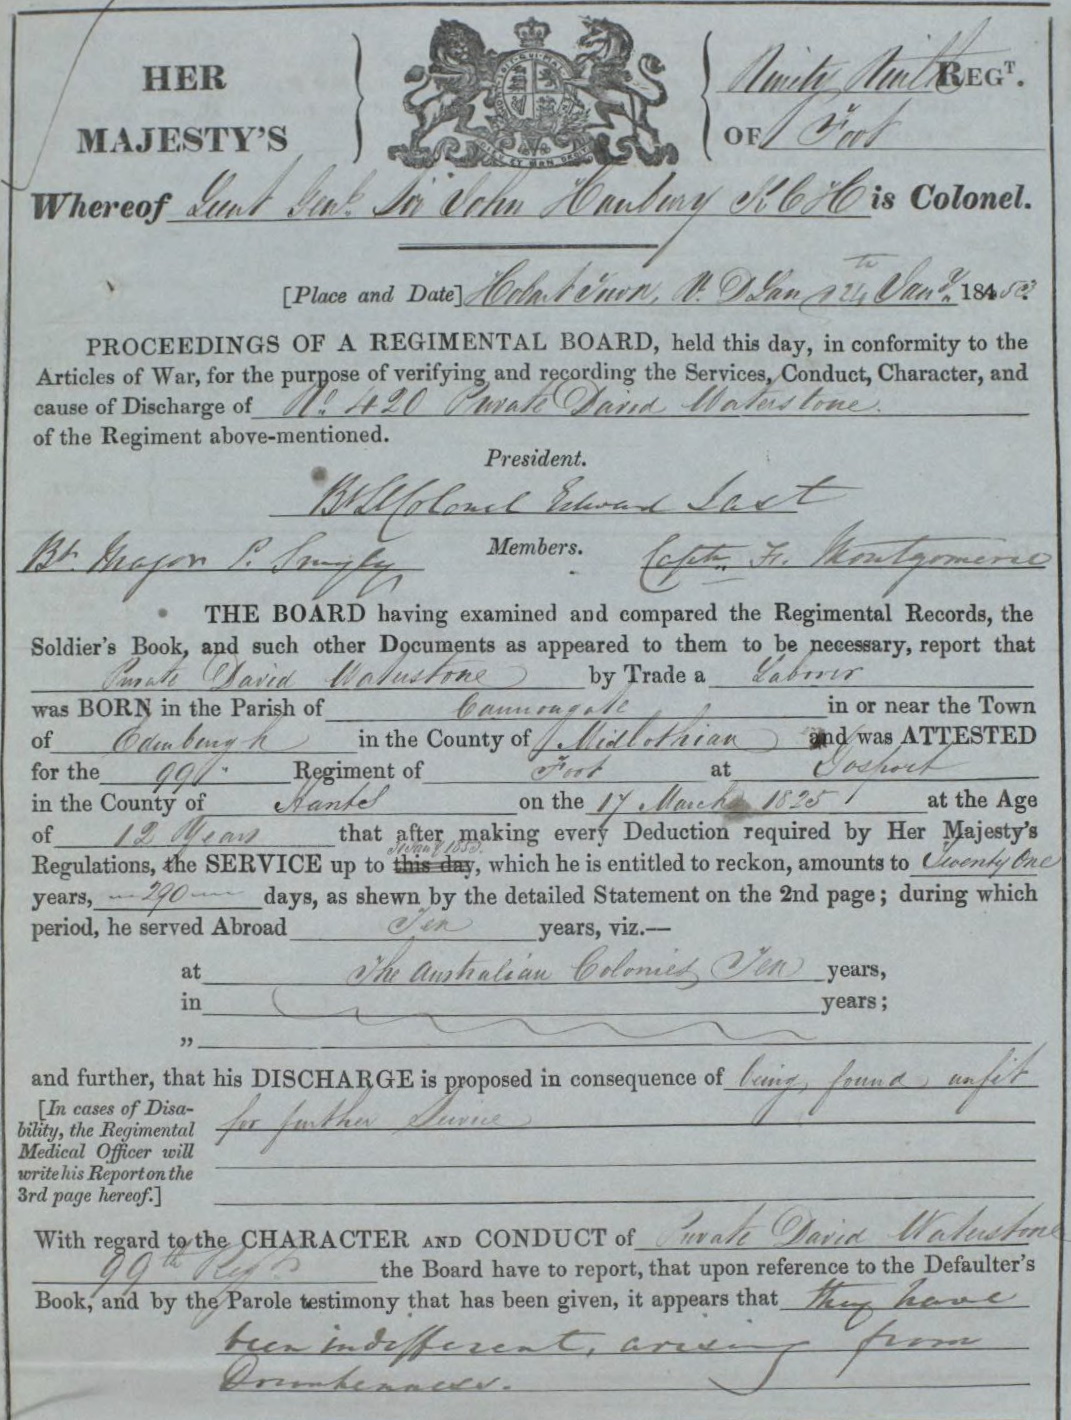 HER MAJESTY'S
Ninety Ninth REGT.
OF Foot
Whereof Lieut Genl. Sir John Hanbury KCH is Colonel.
[Place and Date] Hobart Town, V. D Land 24th Jany. 185
PROCEEDINGS OF A REGIMENTAL BOARD, held this day, in conformity to the
Articles of War, for the purpose of verifying and recording the Services, Conduct, Character, and
cause of Discharge of No. 420 Private David Waterstone.
of the Regiment above-mentioned.
President.
Bt Lt Colonel Edward Last
Members.
Bt. Major P. Smyly
Captn. H. Montgomerie
THE BOARD having examined and compared the Regimental Records, the
Soldier's Book, and such other Documents as appeared to them to be necessary, report that
Private David Waterstone by Trade a Laborer
was BORN in the Parish of Cannongate in or near the Town
of Edinburgh in the County of Midlothian and was ATTESTED
for the 99th Regiment of Foot at Gosport
in the County of Hants on the 17 March 1825 at the Age
of 12 Years that after making every Deduction required by Her Majesty's
Regulations, the SERVICE up to this day, which he is entitled to reckon, amounts to Twenty One
years, 290 days, as shewn by the detailed Statement on the 2nd page; during which
period, he served Abroad Ten years, viz.—
at The Australian Colonies Ten years,
in years;
„
and further, that his DISCHARGE is proposed in consequence of being found unfit
for further Service
[In cases of Disa-
bility, the Regimental
Medical Officer will
write his Report on the
3rd page hereof.]
With regard to the CHARACTER AND CONDUCT of Private David Waterstone
99th Regt. the Board have to report, that upon reference to the Defaulter's
Book, and by the Parole testimony that has been given, it appears that they have
been indifferent, arising from
Drunkenness.